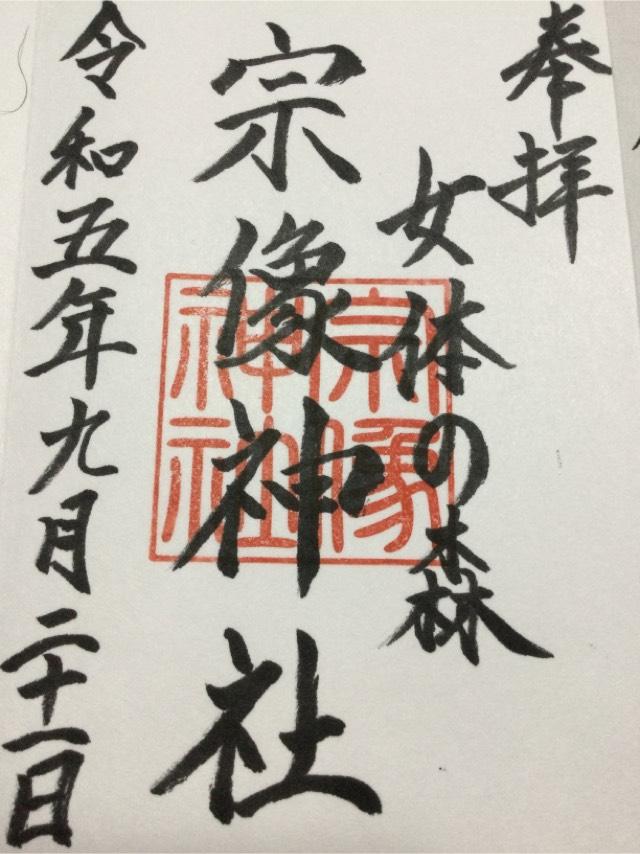 奉拝
女体の森
宗像神社
宗像
神社
令和五年九月二十一日